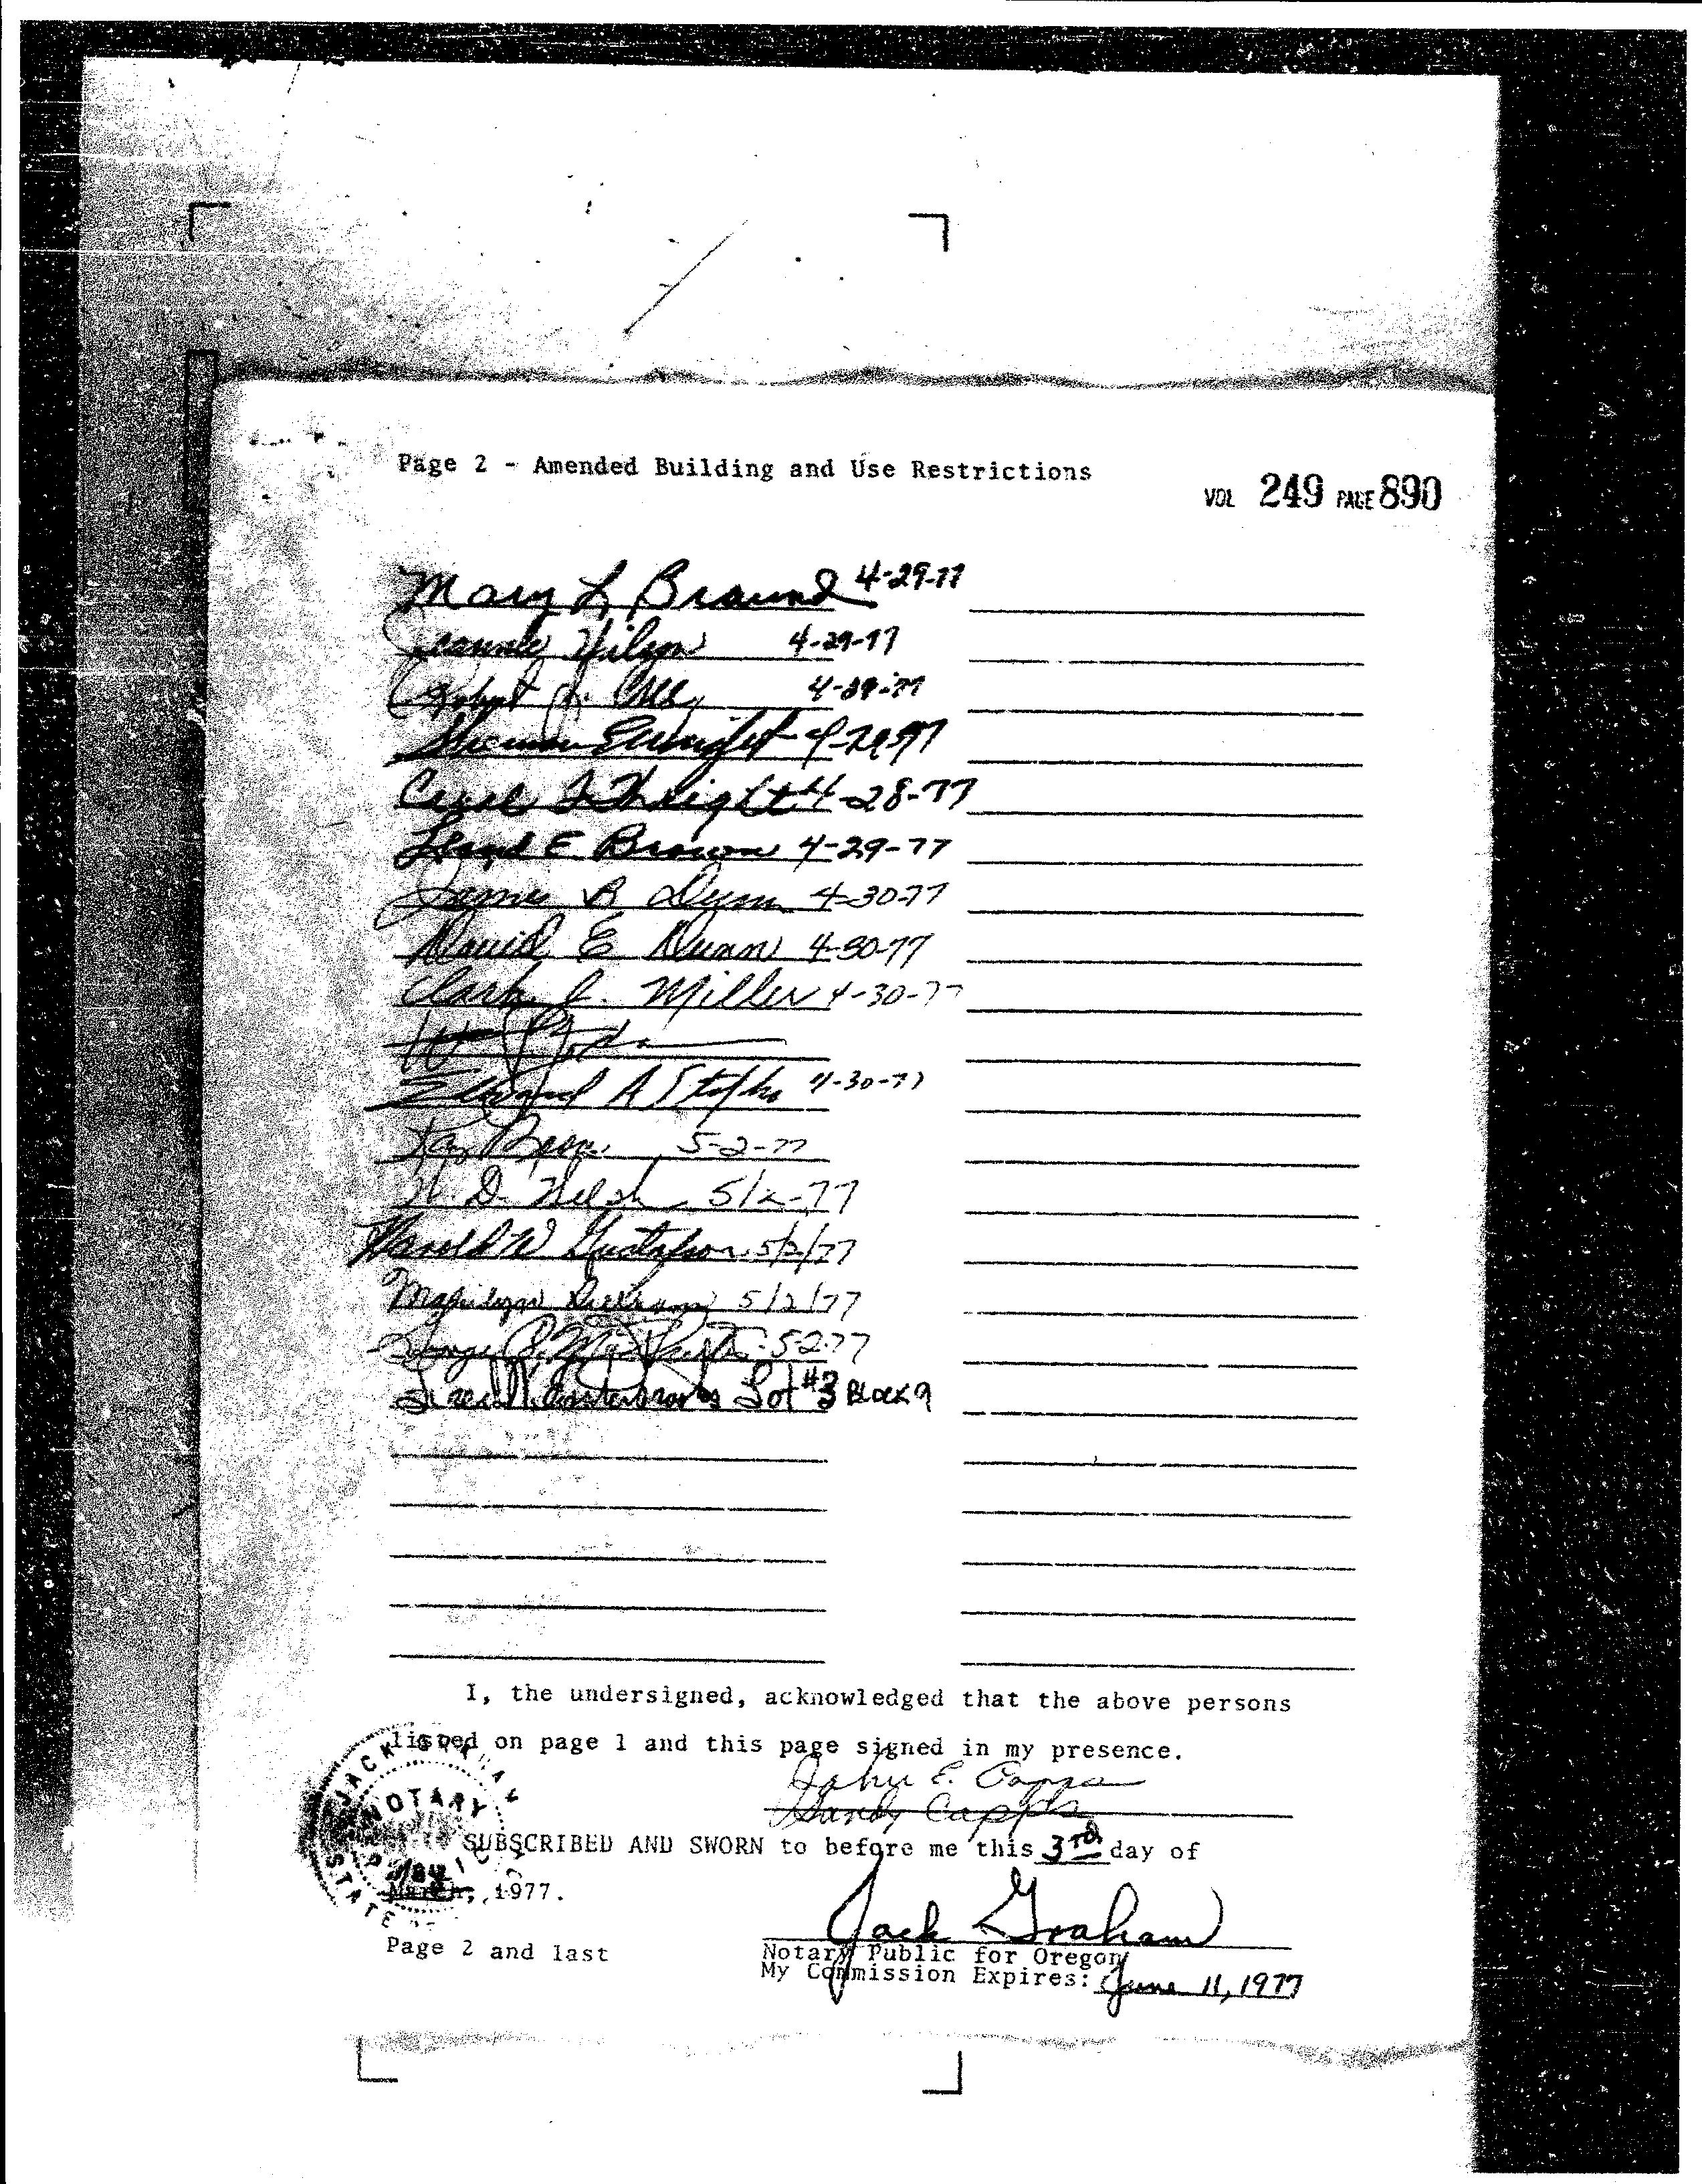 Page 2 - Amended Building and Use Restrictions
VOL 249 PAGE 890
Mary L Braund 4-29-77
Jeannie Wilson 4-29-77
Robert 4-29-77
Sherman Enright 4-29-77
4-28-77
E Brown 4-29-77
James B Dunn 4-30-77
David E Dunn 4-30-77
Clark J. Miller 4-30-77
Edward A 4-30-77
Ray 5-2-77
D. 5/2-77
Harold W Gustafson 5/2/77
5/2/77
George 5-2-77
Lot #3 BLOCK 9
I, the undersigned, acknowledged that the above persons
listed on page 1 and this page signed in my presence.
John E. Capps
Sandy Capps
SUBSCRIBED AND SWORN to before me this 3rd day of
May
March, 1977.
JACK GRAHAM
NOTARY
PUBLIC
STATE
Jack Graham
Page 2 and last
Notary Public for Oregon
My Commission Expires: June 11, 1977